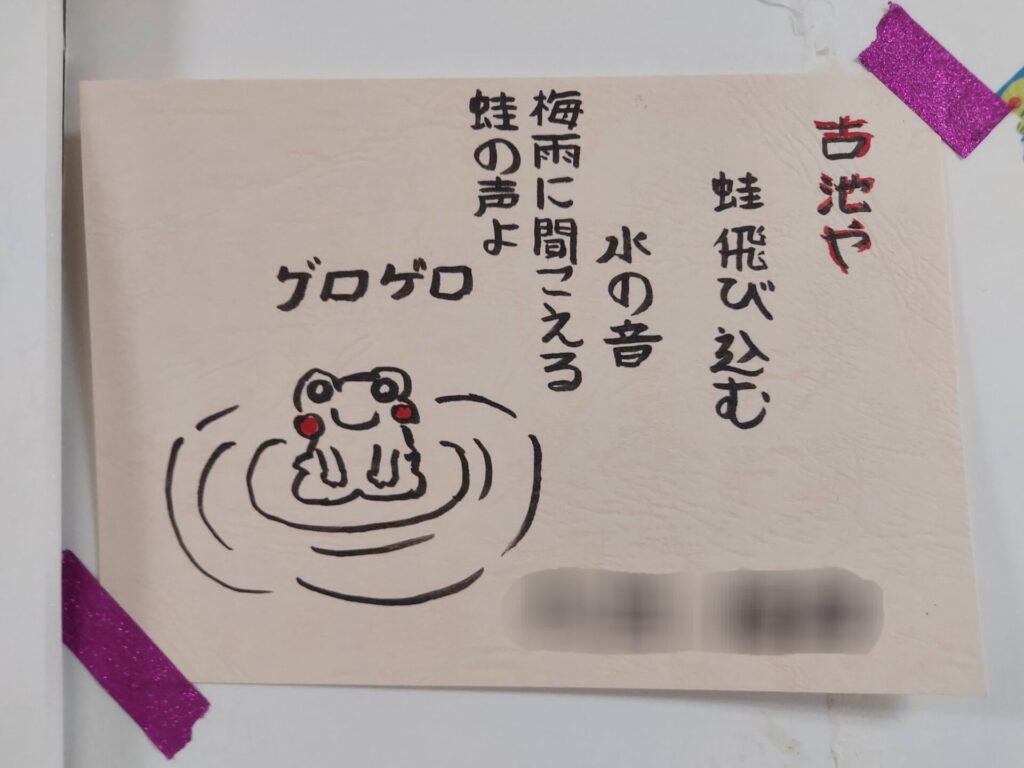 古池や
蛙飛び込む
水の音
梅雨に間こえる
蛙の声よ
ゲロゲロ